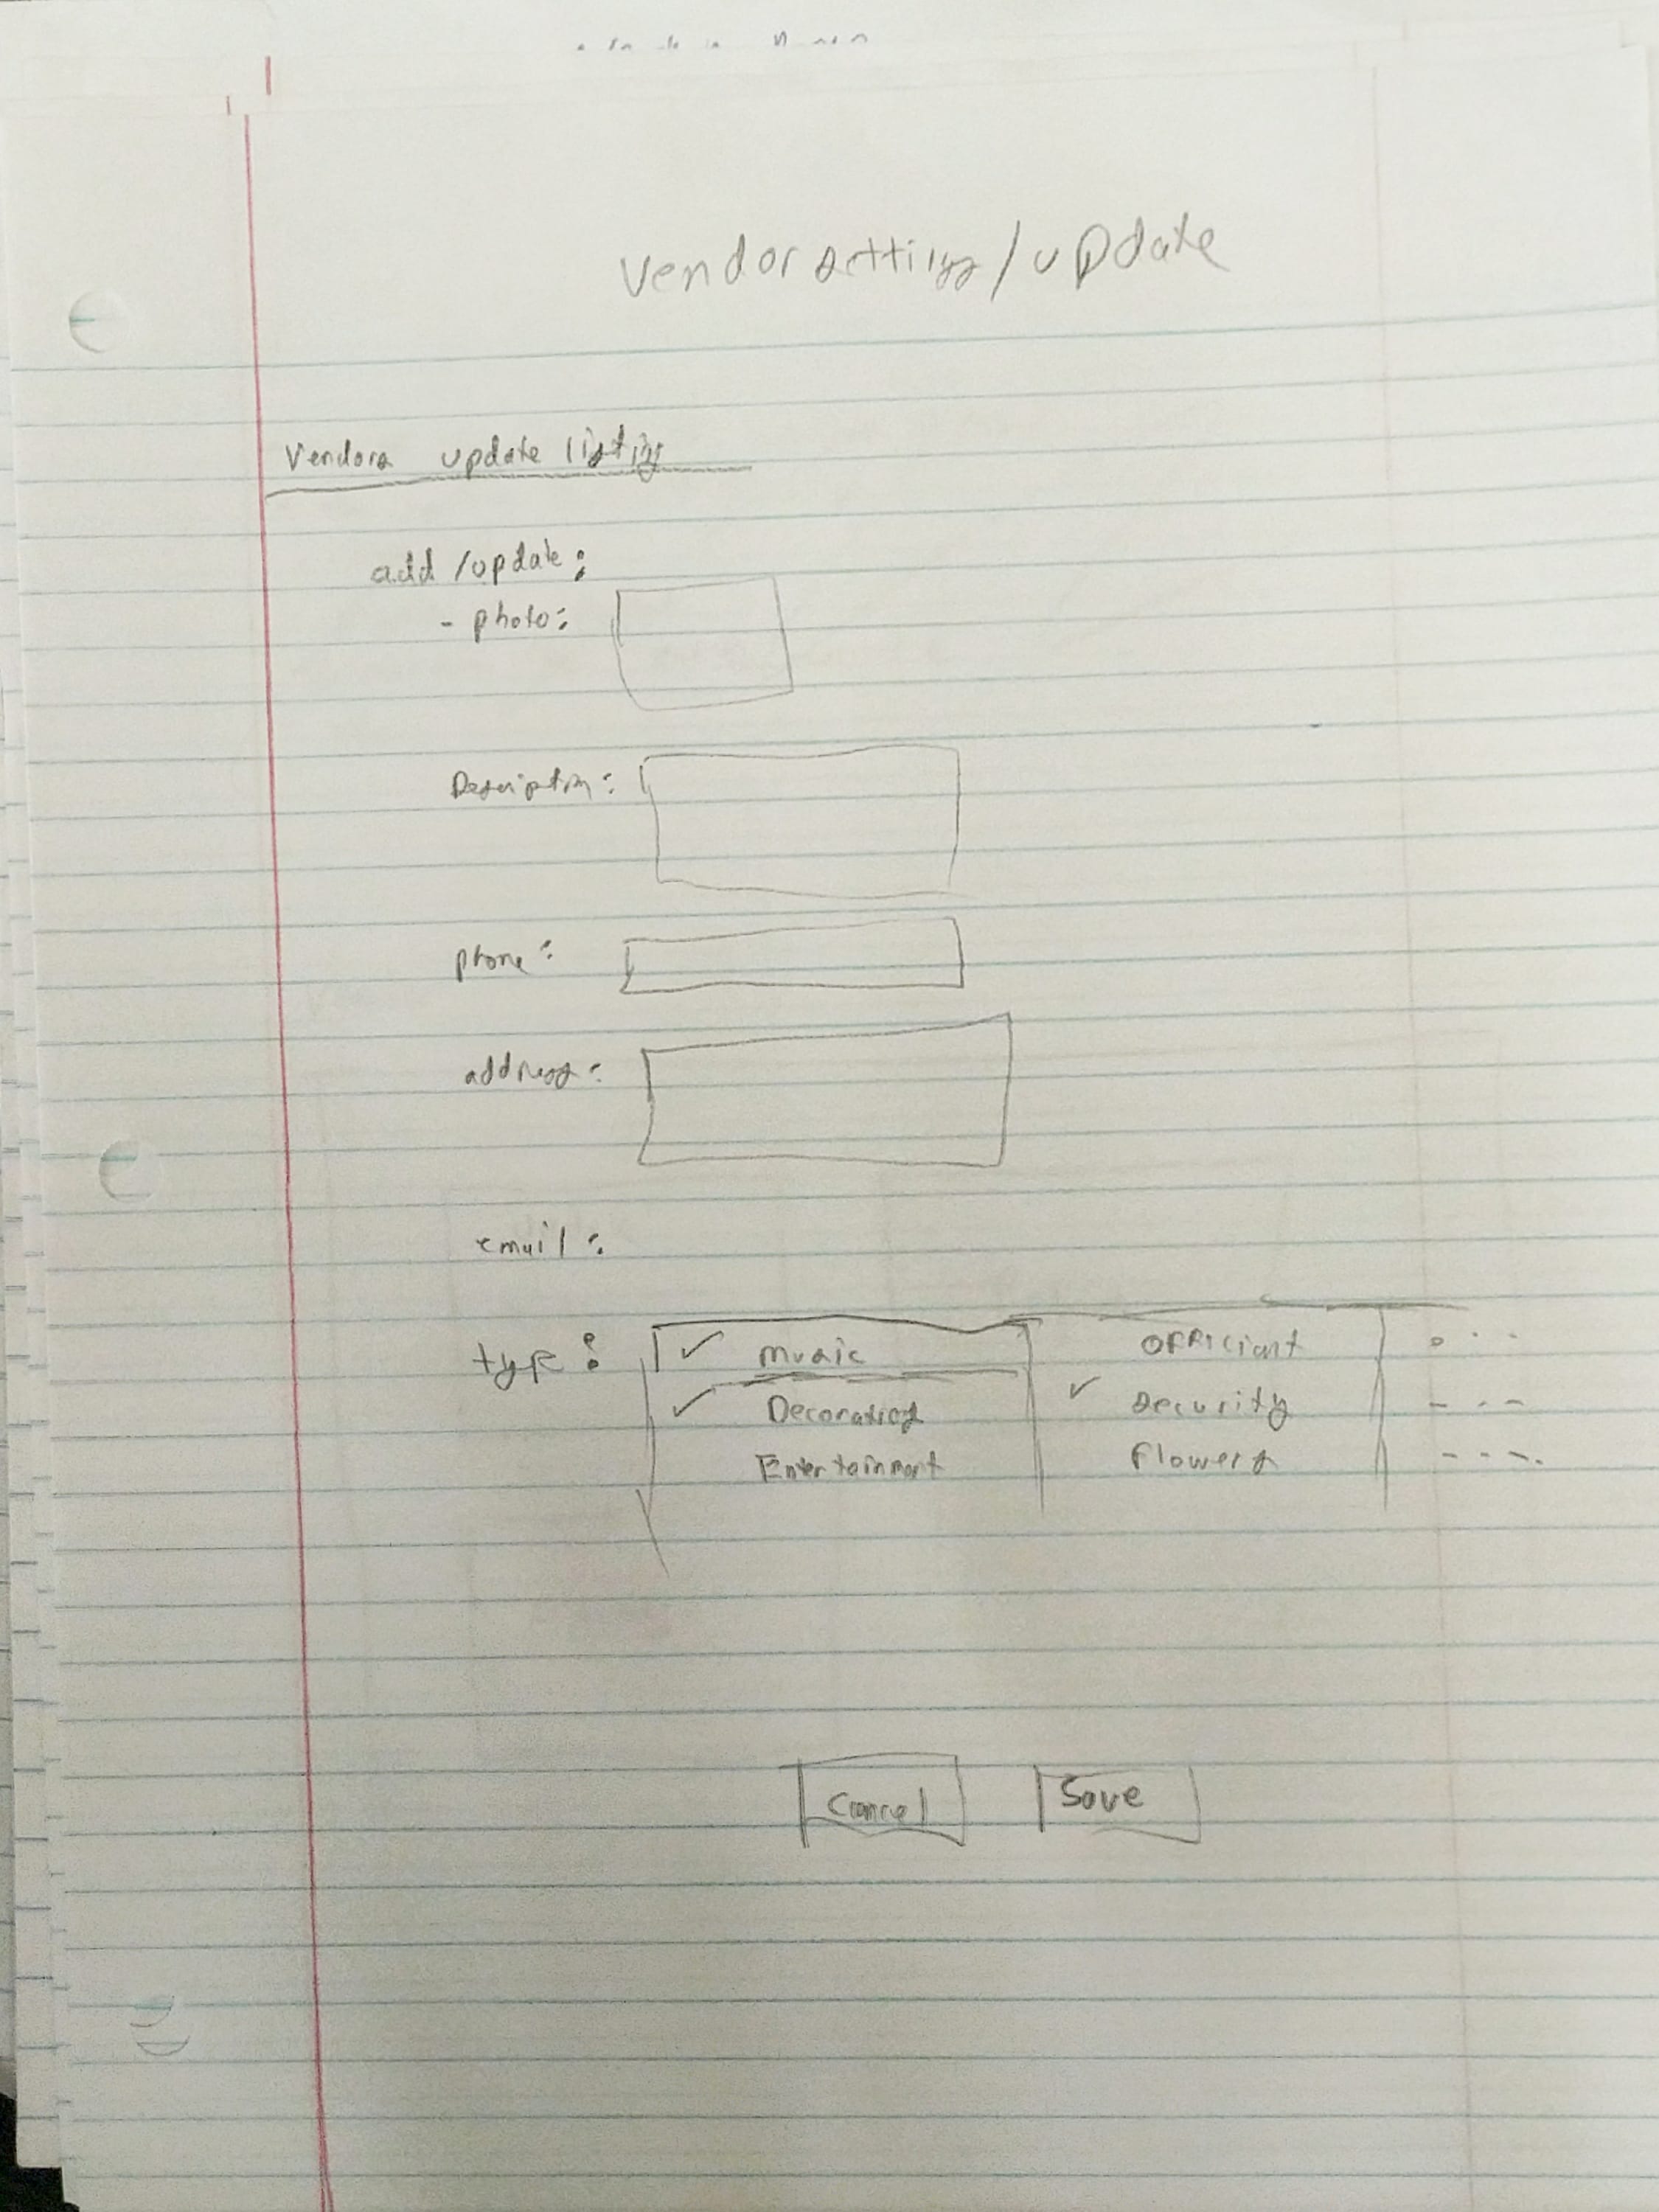 Vendor settings/update
Vendors update listing
add/update:
- photo:
Description:
phone:
address:
email:
type: ✓ music officiant
✓ Decorating ✓ security
Entertainment Flowers
Cancel Save